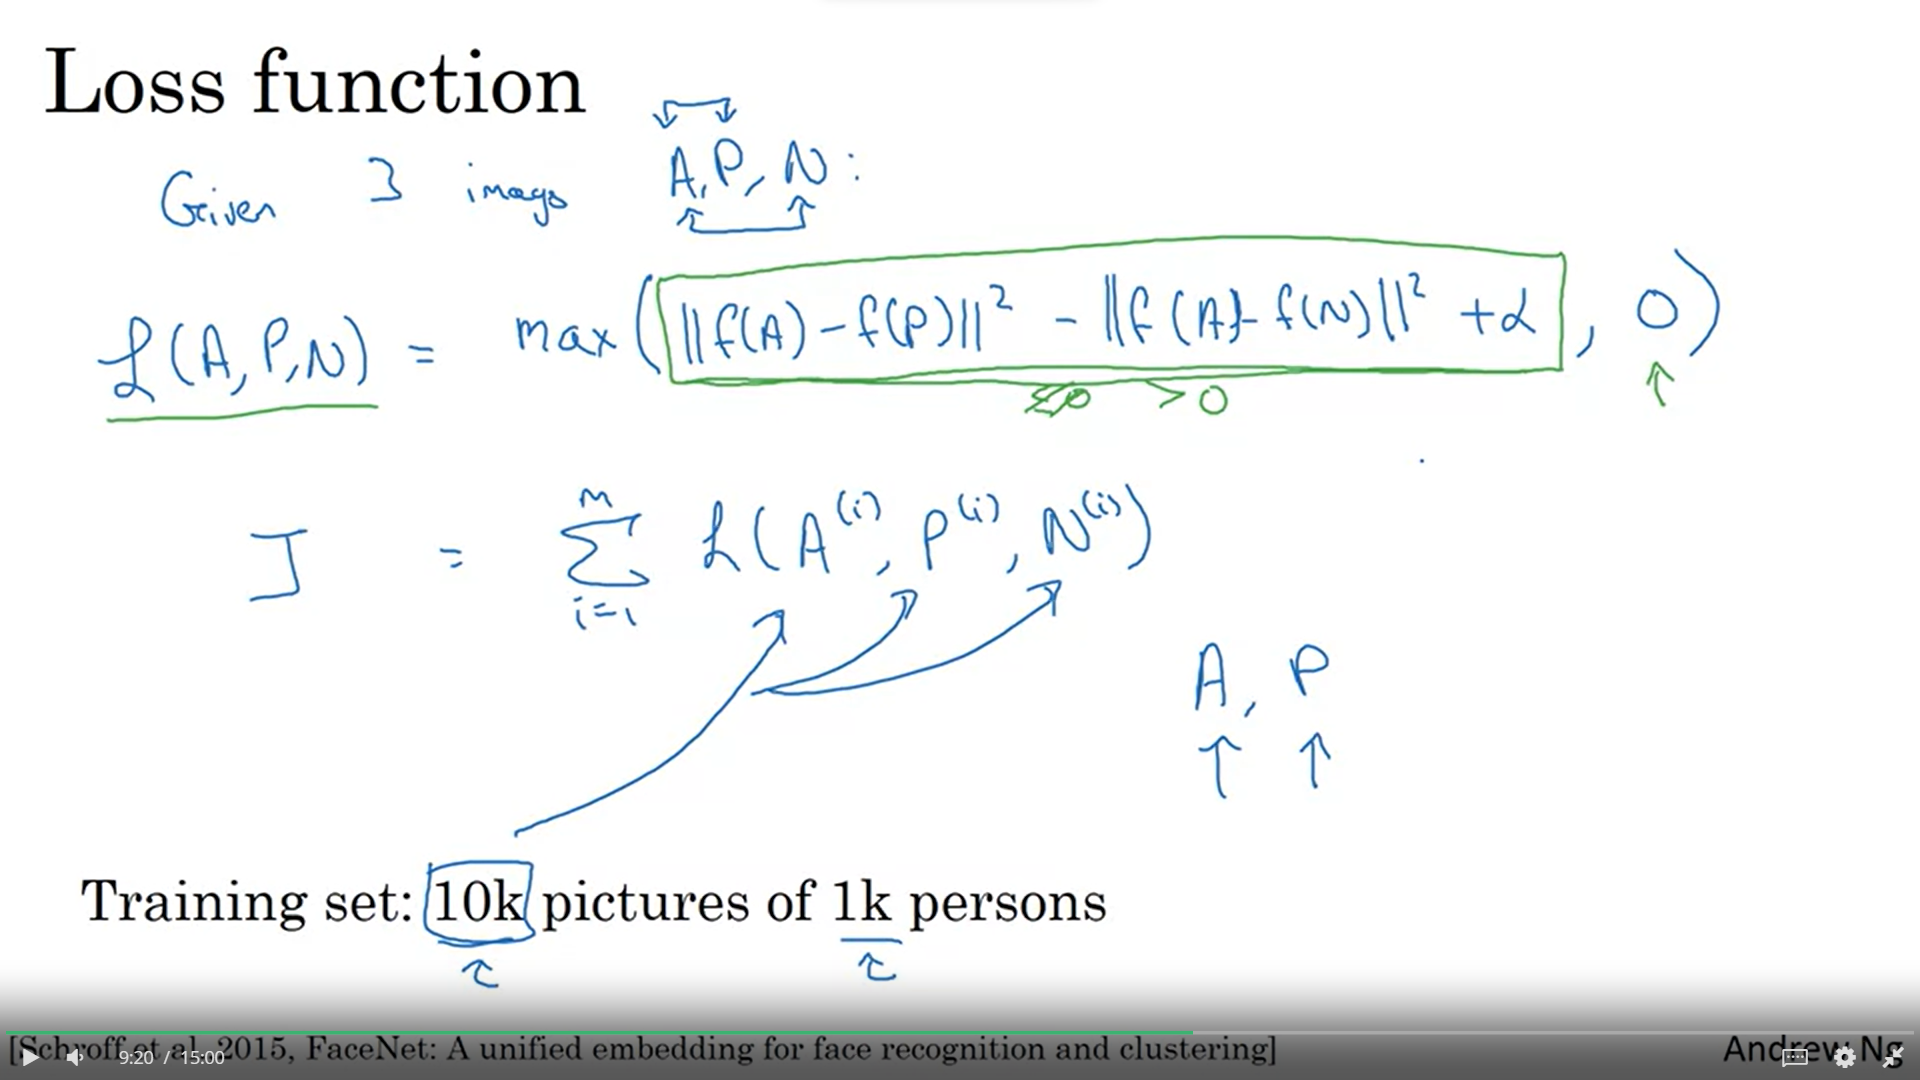 Loss function
Given 3 images A, P, N:
L(A, P, N) = max(||f(A) - f(P)||² - ||f(A) - f(N)||² + α, 0)
> 0
J = Σ_{i=1}^{m} L(A^{(i)}, P^{(i)}, N^{(i)})
A, P
Training set: 10k pictures of 1k persons
[Schroff et al., 2015, FaceNet: A unified embedding for face recognition and clustering]
Andrew Ng
9:20 / 15:00